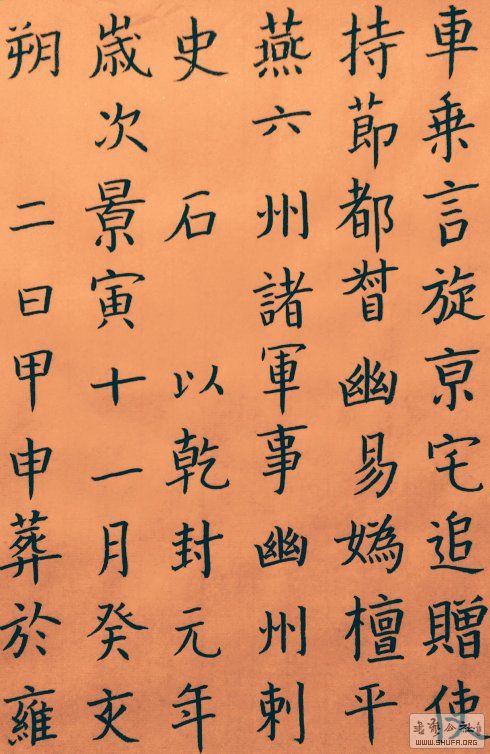 車乗言旋亰宅追贈使
持節都督幽易嬀檀平
燕六州諸軍事幽州刺
史 石 以乾封元年
歳次景寅十一月癸亥
朔 二日甲申葬於雍
書法公社
WWW.SHUFA.ORG